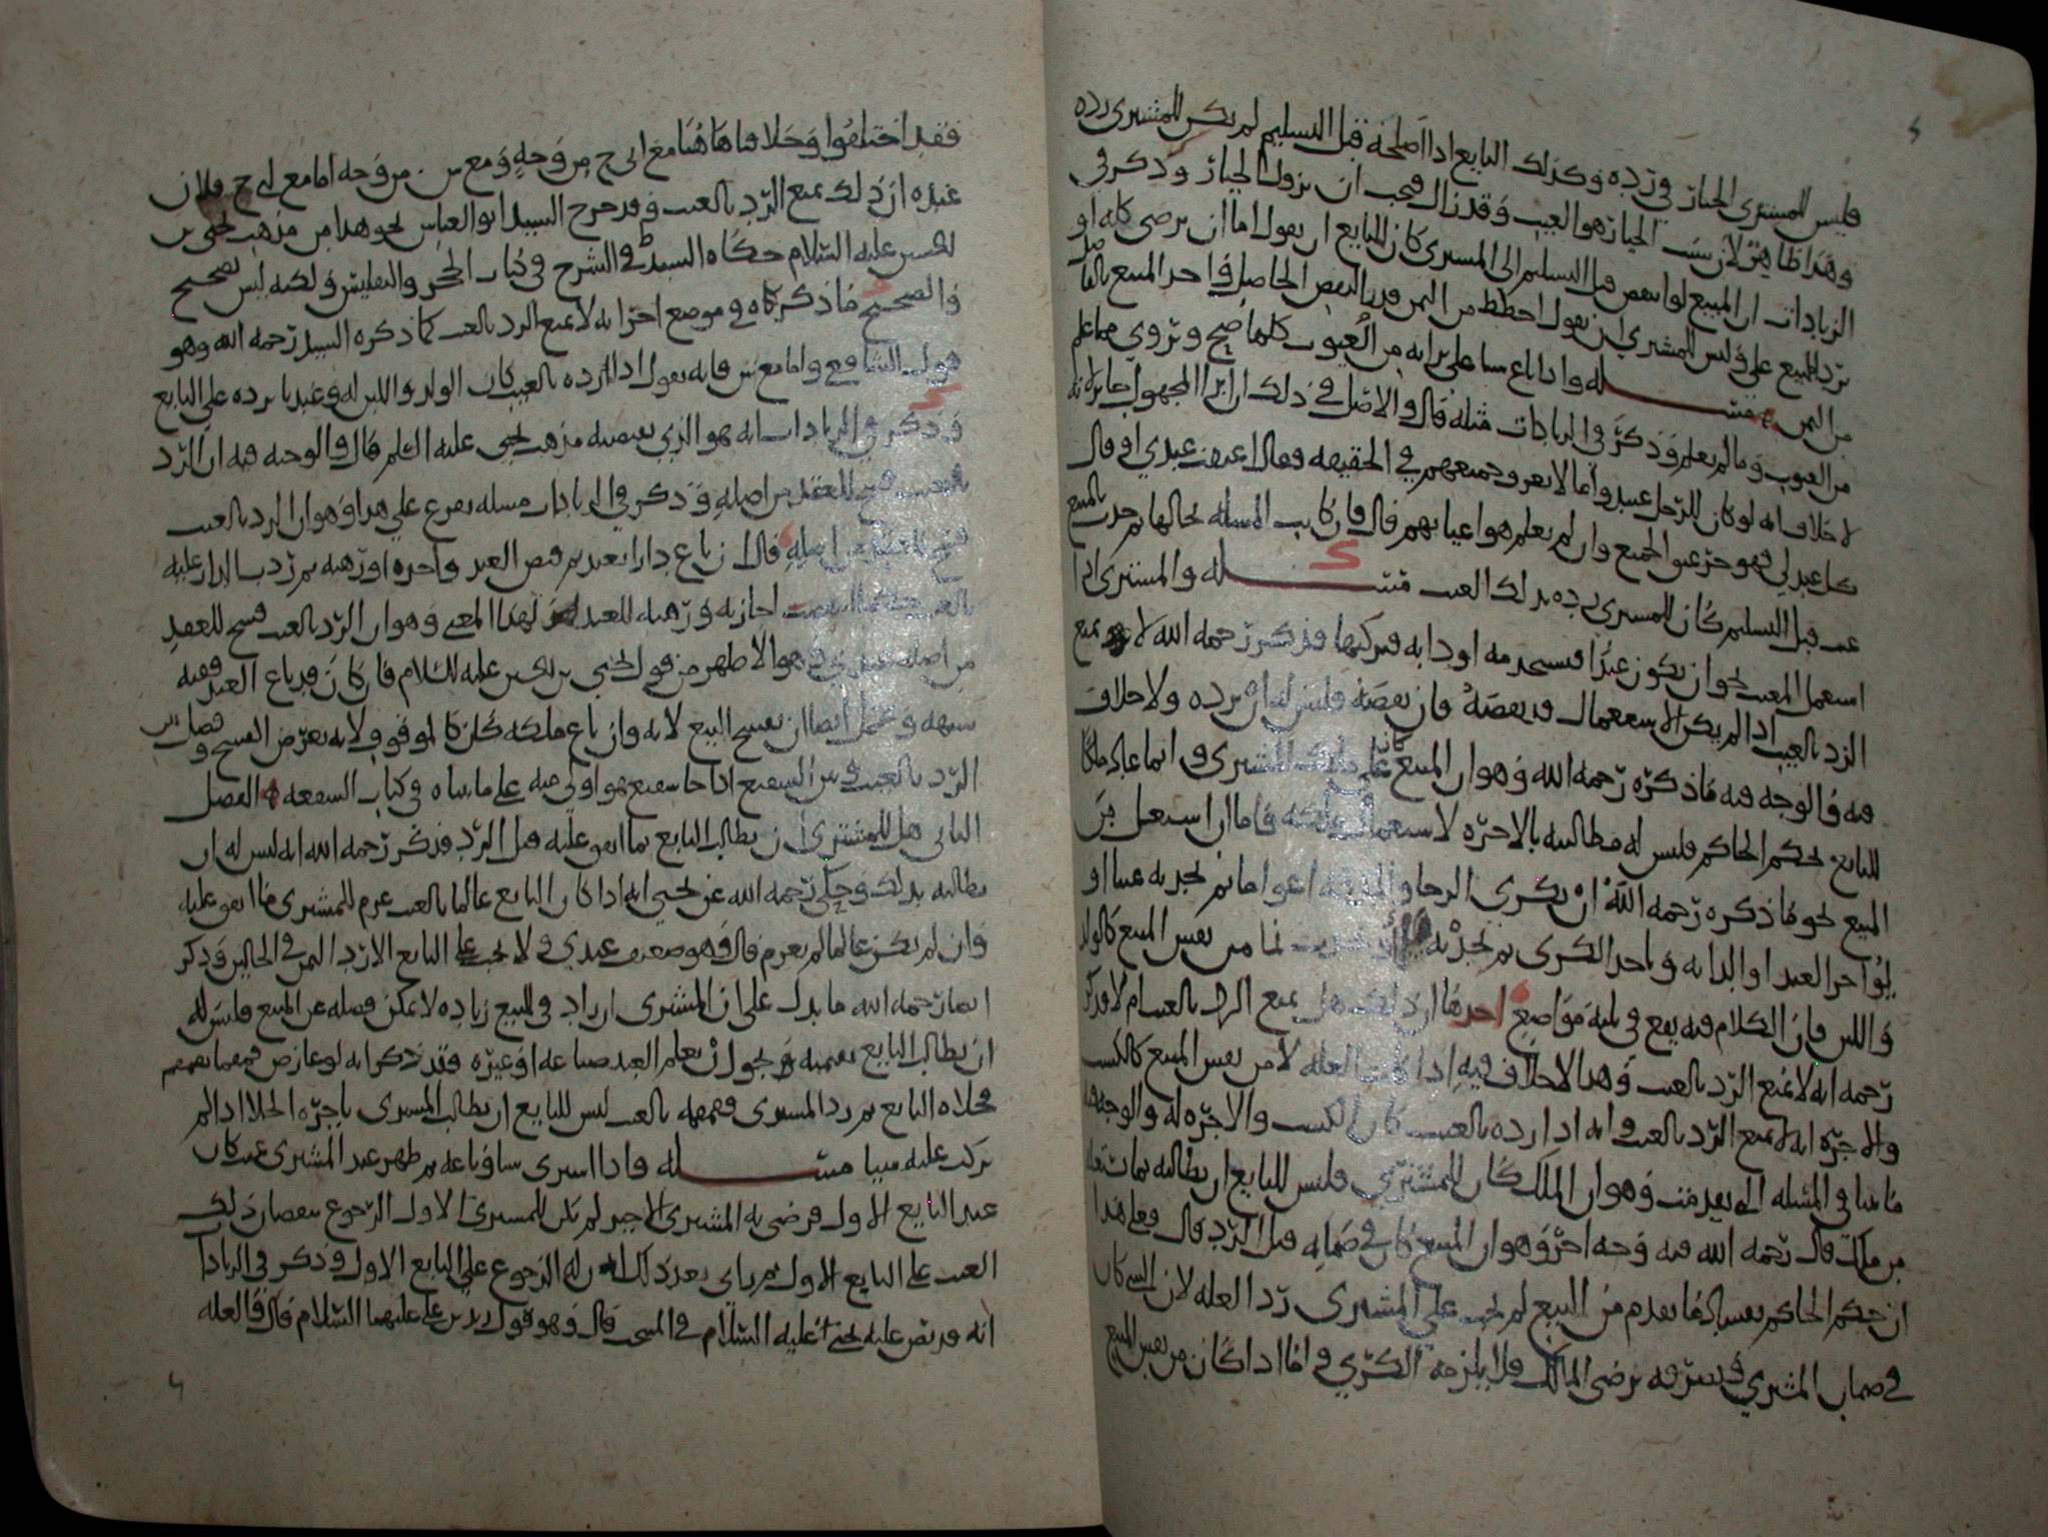 فليس للمشتري الخيار في رده وكذلك البايع اذا اصلحه قبل التسليم لم يكن للمشتري رده
وهذا ظاهر لان سبب الخيار هو العيب وقد زال فيجب ان يزول الخيار وذكر في
الزيادات ان المبيع لو انتقص قبل التسليم الى المشتري كان للبايع ان يقول اما ان ترضى كله او
ترد المبيع علي وليس للمشتري ان يقول احطط من الثمن قدر النقص الحاصل في احد المبيع
من الثمن مسئلة واذا باع شيا على براءته من العيوب كلها صح وبري مما علم
من العيوب وما لم يعلم وذكر في الزيادات مثله قال والاصل في ذلك ان ابرا المجهول جايز
لا خلاف انه لو كان للرجل عبيد واما لا يعرف جميعهم في الحقيقة فقال اعتقت عبيدي او قال
كل عبد لي فهو حر عتق الجميع وان لم يعلم هو اعيانهم قال فان كانت المسلة بحالها ثم حدث بالمبيع
عيب قبل التسليم كان للمشتري رده بذلك العيب مسئلة والمشتري اذا
استعمل المعيب نحو ان يكون عبدا فيستخدمه او دابة فيركبها فذكر رحمه الله لا يمنع
الرد بالعيب اذا لم يكن الاستعمال قد نقصه فان نقصه فليس له ان يرده ولا خلاف
فيه والوجه فيه ما ذكره رحمه الله وهو ان المبيع كان على ملك المشتري وانما عاد ملكا
للبايع بحكم الحاكم فليس له مطالبته بالاجرة لاستعمال ملكه فاما ان استغل من
المبيع نحو ما ذكره رحمه الله ان يكري الرحا
يؤاجر العبد او الدابة وياخذ الكرى ثم يجد به نما من نفس المبيع كالولد
واللبن فان الكلام فيه يقع في ثلثة مواضع احدها ان ذلك هل يمنع الرد بالعيب ام لا فذكر
رحمه انه لا يمنع الرد بالعيب وهذا لا خلاف فيه اذا كانت الغلة لا من نفس المبيع كالكسب
والاجرة انه لا يمنع الرد بالعيب وانه اذا رده بالعيب كان الكسب والاجرة له والوجه
ما بينا في المسئلة التي تقدمت وهو ان الملك كان للمشتري فليس للبايع ان يطالبه بما
من ملك قال رحمه الله فيه وجه اخر وهو ان المبيع كان في ضمانه قبل الرد قال فعلى هذا
ان حكم الحاكم بفساد ما تقدم من البيع لم يجب على المشتري رد الغلة لان الشي كان
في ضمان المشتري برضى المالك فلا يلزمه الكرى واما اذا كان من نفس المبيع
فقد اختلفوا وخلافنا هاهنا مع ابي ح من وجه ومع ش من وجه اما مع ابي ح فلان
عنده ان ذلك يمنع الرد بالعيب وقد خرج السيد ابو العباس نحو هذا من مذهب يحيى بن
الحسين عليه السلام حكاه السيد في الشرح في كتاب الحجر والتفليس ولكنه ليس بصحيح
والصحيح ما ذكرناه في موضع اخر انه لا يمنع الرد بالعيب كما ذكره السيد رحمه الله وهو
قول الشافعي واما مع ش فانه يقول اذا رده بالعيب كان الولد واللبن له وعندنا يرده على البايع
وذكر في الزيادات انه هو الذي يقتضيه مذهب يحيى عليه السلام قال والوجه فيه ان الرد
بالعيب فسخ للعقد من اصله وذكر في الزيادات مسئلة تفرع على هذا وهو ان الرد بالعيب
فسخ للعقد من اصله قال ان باع دارا بعبد ثم قبض العبد واجره او رهنه ثم رد الدار عليه
بالعيب اجازته ورهنه للعبد لهذا المعنى وهو ان الرد بالعيب فسخ للعقد
من اصله وهو الاظهر من قول يحيى بن الحسين عليه السلام فان كان قد باع العبد ففيه
شبهة ويحتمل ايضا ان يفسخ البيع لانه وان باع ملكه كان كالموقوف لانه تعرض الفسخ
الرد بالعيب وبين الشفيع اذا جا شفيع هو اولى منه على ما بيناه في كتاب الشفعة الفصل
الثاني هل للمشتري ان يطالب البايع بما انفق عليه قبل الرد فذكر رحمه الله انه ليس له ان
يطالبه بذلك وحكى رحمه الله عن يحيى انه اذا كان البايع عالما بالعيب غرم للمشتري ما انفق عليه
وان لم يكن عالما لم يغرم قال وهو ضعيف عندي ولا يجب على البايع الا رد الثمن في الحالين وذكر
ايضا رحمه الله ما يدل على ان المشتري ان زاد في المبيع زيادة لا يمكن فصله عن المبيع فليس له
ان يطالب البايع بقيمته نحو ان يعلم العبد صناعة او غيره فقد ذكر انه لو عارض قمقما بقمقم
فجلاه البايع ثم رد المشتري قمقمه بالعيب ليس للبايع ان يطالب المشتري باجرة الجلا اذا لم
يركب عليه شيا مسئلة واذا اشترى شيا وباعه ثم ظهر عند المشتري عيب كان
عند البايع الاول فرضي به المشتري الاخير لم يكن للمشتري الاول الرجوع بنقصان ذلك
العيب على البايع الاول ثم راى بعد ذلك ان له الرجوع على البايع الاول وذكر في الزيادات
انه قد نص عليه يحيى عليه السلام في المنتخب قال وهو قول زيد بن علي عليهما السلام قال والعلة